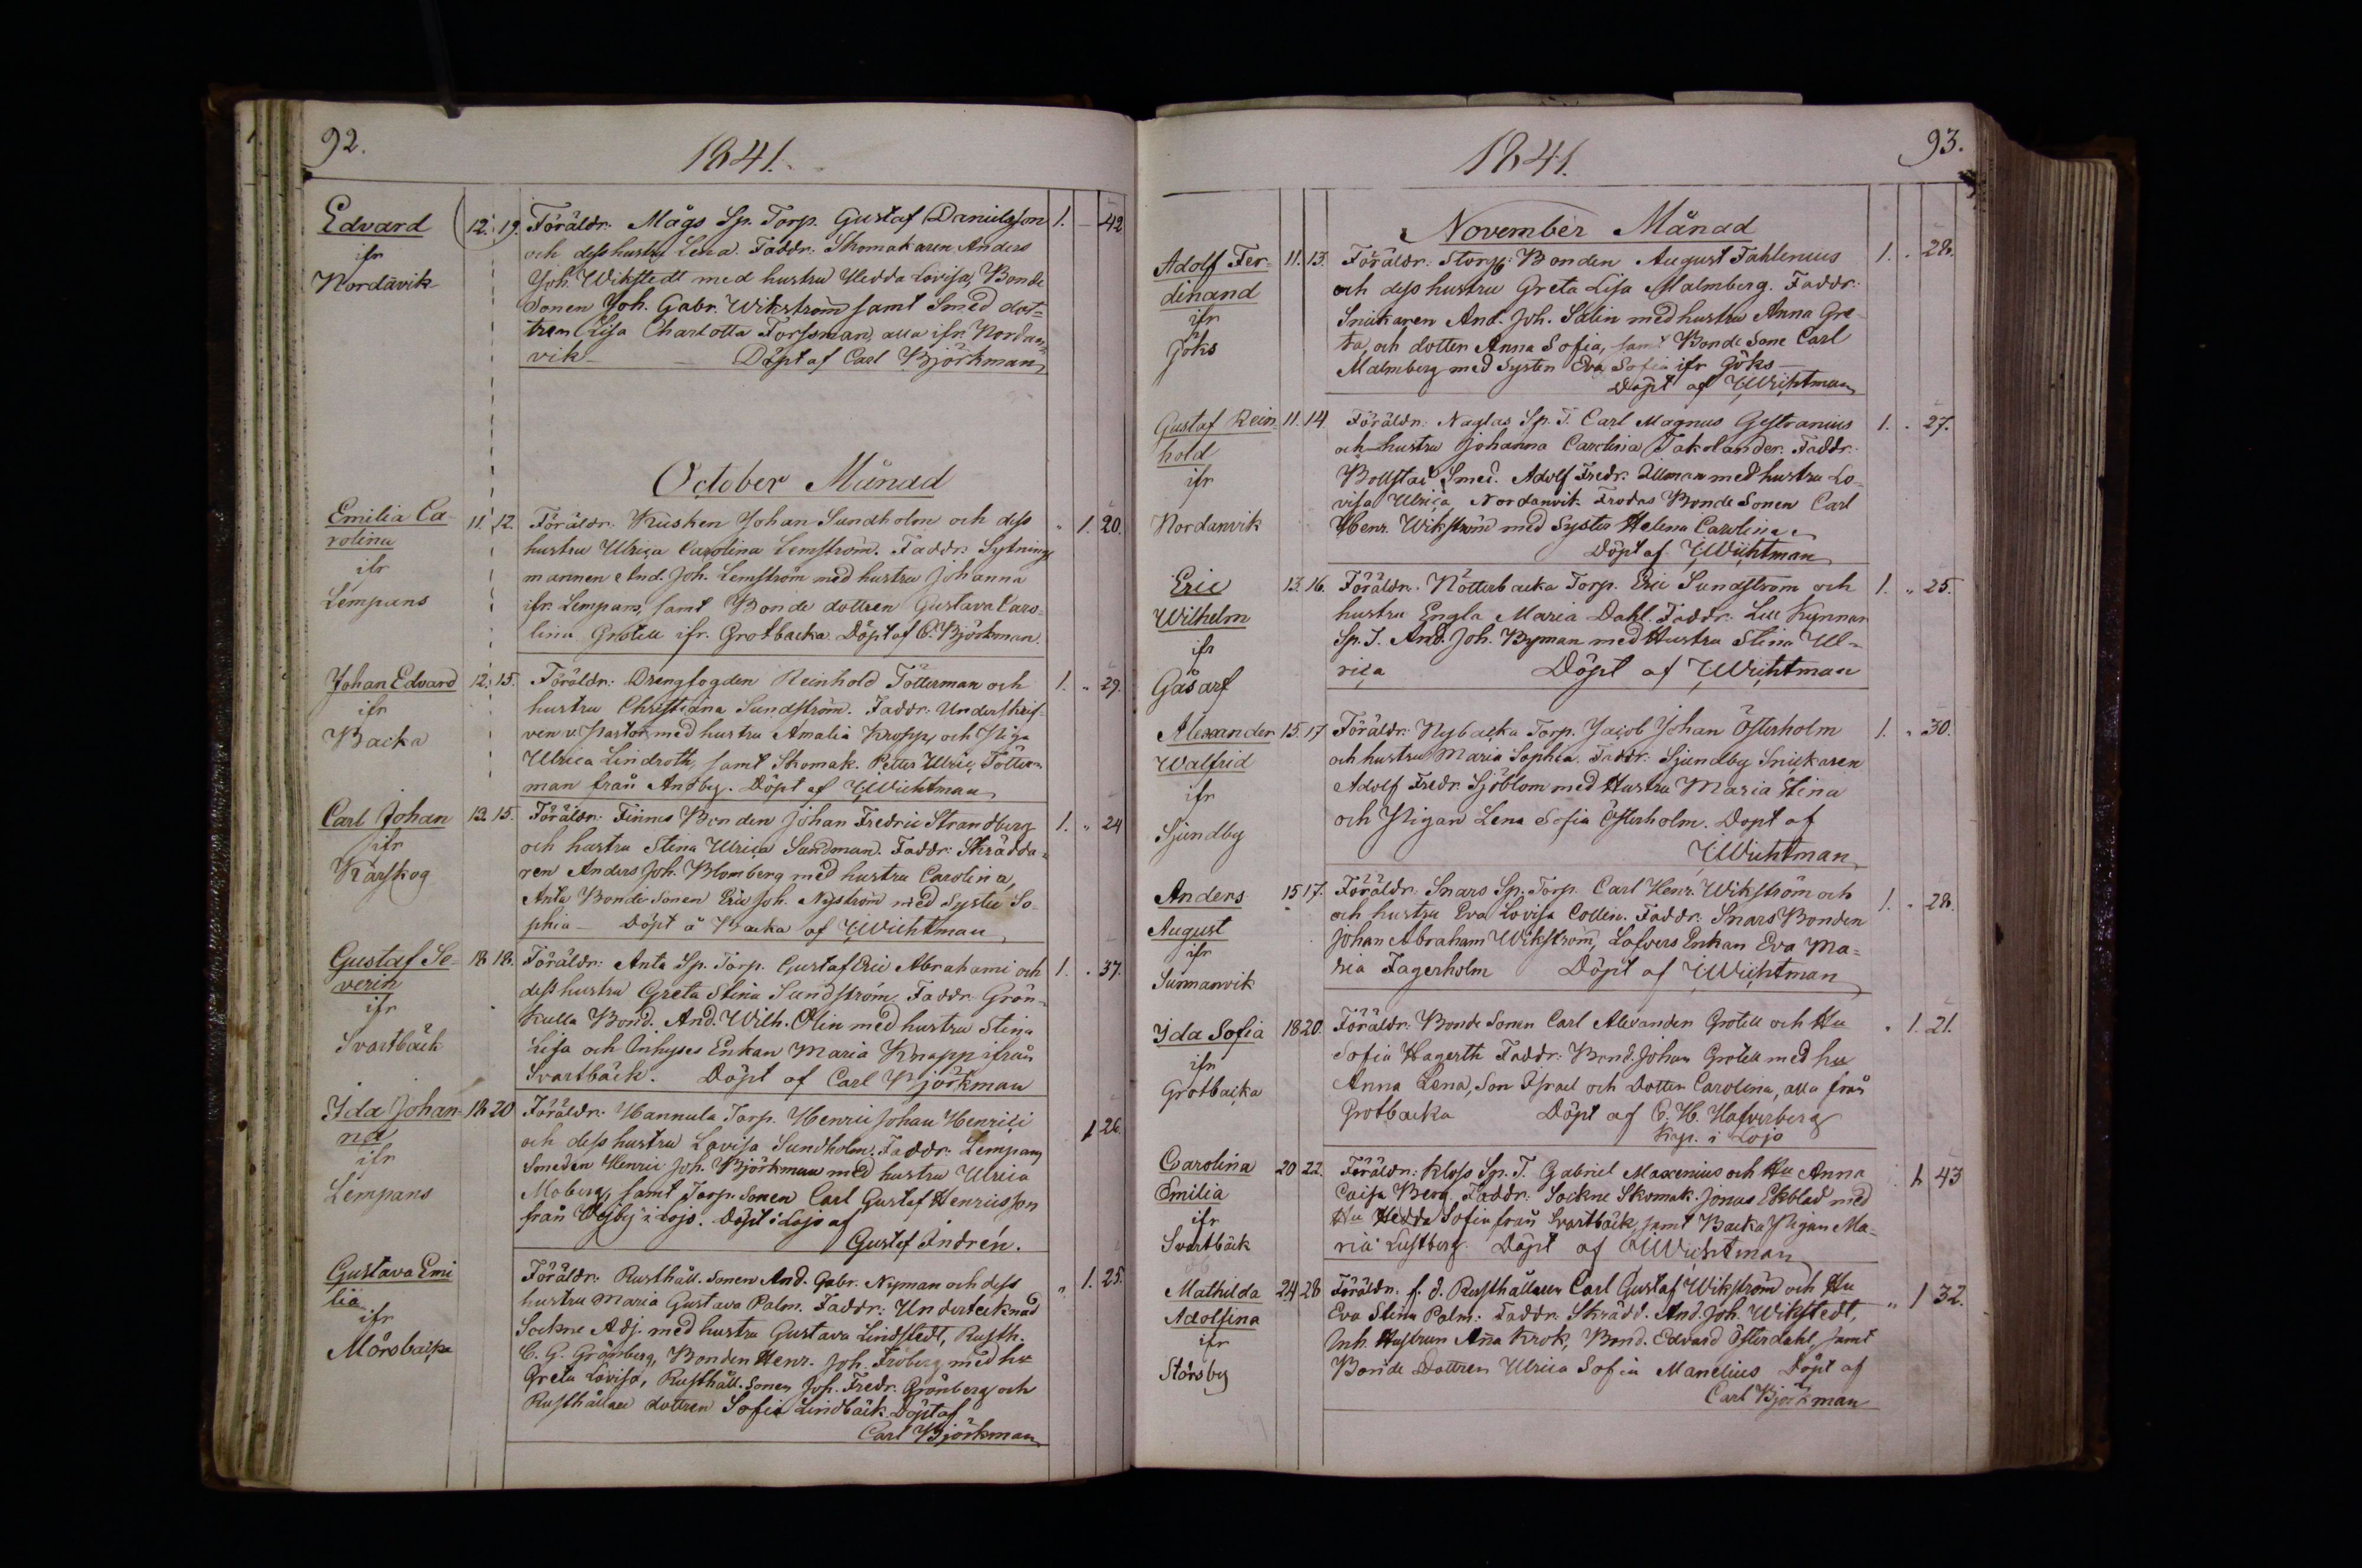 92.
1841.
Edvard 12. 19. Föräldr: Mågs Sp. Torp. Gustaf Danielsson 1. — 42
ifr och dess hustru Lena. Faddr: Skomakaren Anders
Nordavik Joh. Wikstedt med hustru Hedda Lovisa, Bonde
Sonen Joh. Gabr. Wikström samt Smed dot-
tren Lisa Charlotta Forssman, alla ifr. Nordan-
vik — Döpt af Carl Björkman
October Månad
Emilia Ca- 11. 12. Föräldr: Kusken Johan Sundholm och dess " 1. 20.
rolina hustru Ulrica Carolina Lemström. Faddr: Sytnings
ifr mannen And. Joh. Lemström med hustru Johanna
Lempans ifr. Lempans, samt Bonde dottren Gustava Caro-
lina Grotell ifr. Grotbacka Döpt af C. Björkman.
Johan Edvard 12. 15. Föräldr: Drengfogden Reinhold Tötterman och 1. " 29.
ifr hustru Christina Sundström. Faddr: Underskrif-
Backa ven v. Pastor med hustru Amalia Kropp, och Piga
Ulrica Lindroth, samt Skomak. Petter Ulric Tötter-
man från Andby. Döpt af Wichtman
Carl Johan 13. 15. Föräldr: Finnes Bonden Johan Fredric Strandberg 1. " 24
ifr och hustru Stina Ulrica Sandman. Faddr: Skrädda-
Kårskog ren Anders Joh. Blomberg med hustru Carolina,
Anta Bonde Sonen Eric Joh. Nyström med Syster So-
phia — Döpt å Backa af Wichtman
Gustaf Se- 18 18. Föräldr: Anta Sp. Torp. Gustaf Eric Abrahami och 1. . 37.
verin dess hustru Greta Stina Sundström. Faddr: Grön-
ifr kulla Bond. And. Wilh. Olin med hustru Stina
Svartbäck Lisa och Inhyses Enkan Maria Knapp ifrån
Svartbäck. Döpt af Carl Björkman
Ida Johan- 18 20 Föräldr: Hannula Torp. Henric Johan Henrici 1 26.
na och dess hustru Lovisa Sundholm. Faddr: Lempans
ifr Smeden Henric Joh. Björkman med hustru Ulrica
Lempans Moberg, samt Torp. Sonen Carl Gustaf Henricsson
från i Lojo. Döpt i Lojo af
Gustaf Andrén.
Gustava Emi Föräldr: Rusthåll. Sonen And. Gabr. Nyman och dess " 1. 25.
lia hustru Maria Gustava Palm. Faddr: Undertecknad
ifr Sockne Adj. med hustru Gustava Lindstedt, Rusth.
Mörsbacka C. G. Grönberg, Bonden Henr. Joh. Fröberg med hu
Greta Lovisa, Rusthåll. Sonen Joh. Fredr. Grönberg och
Rusthållare dottren Sofia Lindbäck. Döpt af
Carl Björkman
93.
1841.
November Månad
Adolf Fer- 11. 13. Föräldr: Storsp: Bonden August Fahlenius 1. . 28.
dinand och dess hustru Greta Lisa Malmberg. Faddr:
ifr Snickaren And. Joh. Salin med hustru Anna Gre-
Göks ta, och dotter Anna Sofia, samt Bonde Sone Carl
Malmberg med Syster Eva Sofia ifr Göks —
Döpt af Wichtman
Gustaf Rein- 11. 14 Föräldr: Naglas Sp. T. Carl Magnus Gestranius 1. . 27.
hold och hustru Johanna Carolina Takolander. Faddr:
ifr Bollstad Smed. Adolf Fredr. Illman med hustru Lo-
Nordanvik visa Ulrica, Nordanvik Frodas Bonde Sonen Carl
Henr. Wikström med Syster Helena Carolina.
Döpt af Wichtman
Eric 13. 16. Föräldr: Nötterbacka Torp. Eric Sundström och 1. " 25.
Wilhelm hustru Engla Maria Dahl. Faddr: Lill Kynnar
ifr Sp. T. And. Joh. Byman med Hustru Stina Ul-
Gåsarf rica Döpt af Wichtman
Alexander 15. 17 Föräldr: Nybacka Torp. Jacob Johan Österholm 1. " 30.
Walfrid och hustru Maria Sophia. Faddr: Sjundby Snickaren
ifr Adolf Fredr. Sjöblom med Hustru Maria Stina
Sjundby och Pigan Lena Sofia Österholm. Döpt af
Wichtman
Anders 15 17. Föräldr: Snars Sp. Torp. Carl Henr. Wikström och 1. " 28.
August och hustru Eva Lovisa Collin. Faddr: Snars Bonden
ifr Johan Abraham Wikström, Lofvers Enkan Eva Ma-
Sunnanvik ria Fagerholm Döpt af Wichtman
Ida Sofia 18 20. Föräldr: Bonde Sonen Carl Alexander Grotell och Hu " 1. 21.
ifr Sofia Hagerth Faddr: Bond. Johan Grotell med hu
Grotbacka Anna Lena, Son Israel och Dotter Carolina, alla från
Grotbacka Döpt af C. H. Hafverberg
Kap. i Lojo
Carolina 20 22. Föräldr: Kloss Sp. T. Gabriel Maxenius och Hu Anna . 1. 43
Emilia Caisa Berg. Faddr: Sockne Skomak. Jonas Ekblad med
ifr Hu Hedda Sofia från Svartbäck, samt Backa Pigan Ma-
Svartbäck ria Lustberg. Döpt af Wichtman
Mathilda 24 28 Föräldr: f. d. Rusthållaren Carl Gustaf Wikström och Hu " 1 32.
Adolfina Eva Stina Palm: Faddr. Skrädd. And. Joh. Wikstedt,
ifr Inh. Hustrun Anna Krok, Bond. Edvard Österdahl, samt
Störsby Bonde Dottren Ulrica Sofia Manelius Döpt af
Carl Björkman